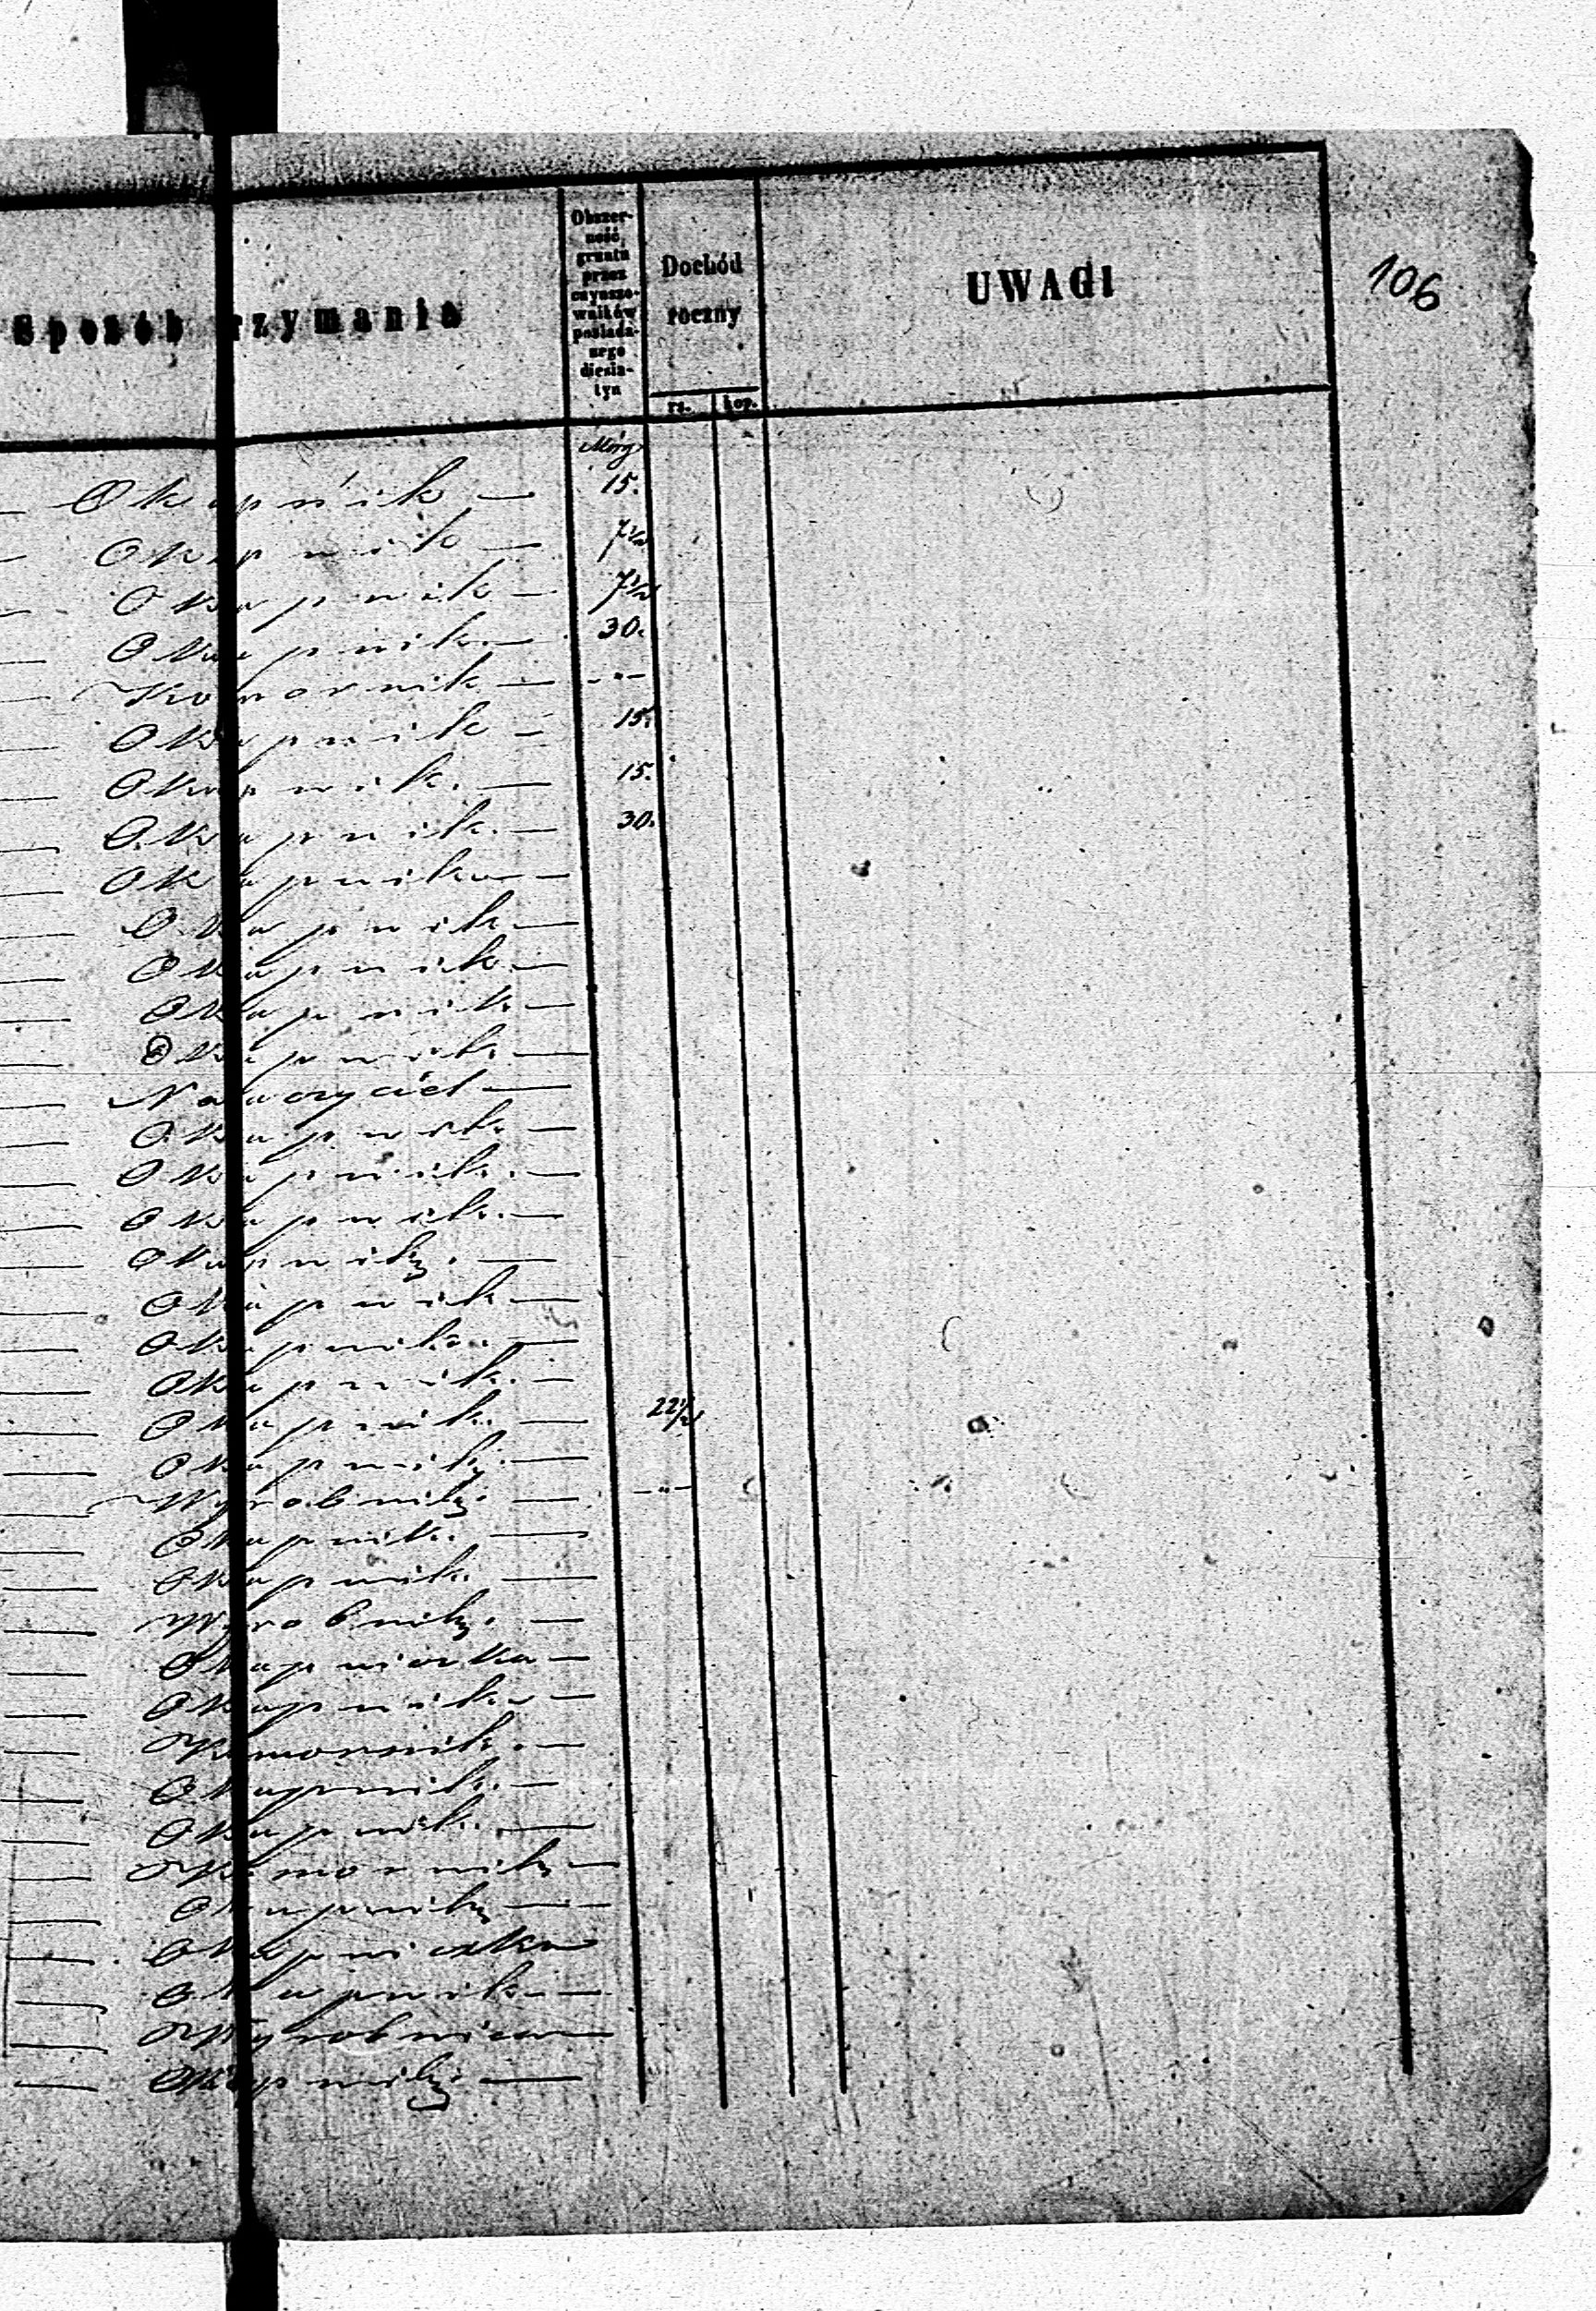 106
Sposób rzymania
Obszer-
ność
gruntu
przez
czynszo-
wników
posiada-
nego
diesia-
tyn
Dochód
roczny
rs. kop.
UWAGI
Mórg
Okupnik — 15.
Okupnik — 7½
Okupnik — 7½
Okupnik. — 30.
Komornik — -"-
Okupnik — 15.
Okupnik. — 15.
Okupnik. — 30.
Okupnik —
Okupnik —
Okupnik —
Okupnik —
Okupnik —
Nauczyciel —
Okupnik —
Okupnik. —
Okupnik. —
Okupnik. —
Okupnik —
Okupnik. —
Okupnik. —
Okupnik. — 22½
Okupnik. —
Wyrobnik. — -"-
Okupnik. —
Okupnik. —
Wyrobnik. —
Okupniczka —
Okupnik —
Komornik. —
Okupnik. —
Okupnik. —
Komornik —
Okupnik —
Okupniczka
Okupnik —
Wyrobnica —
Okupnik. —